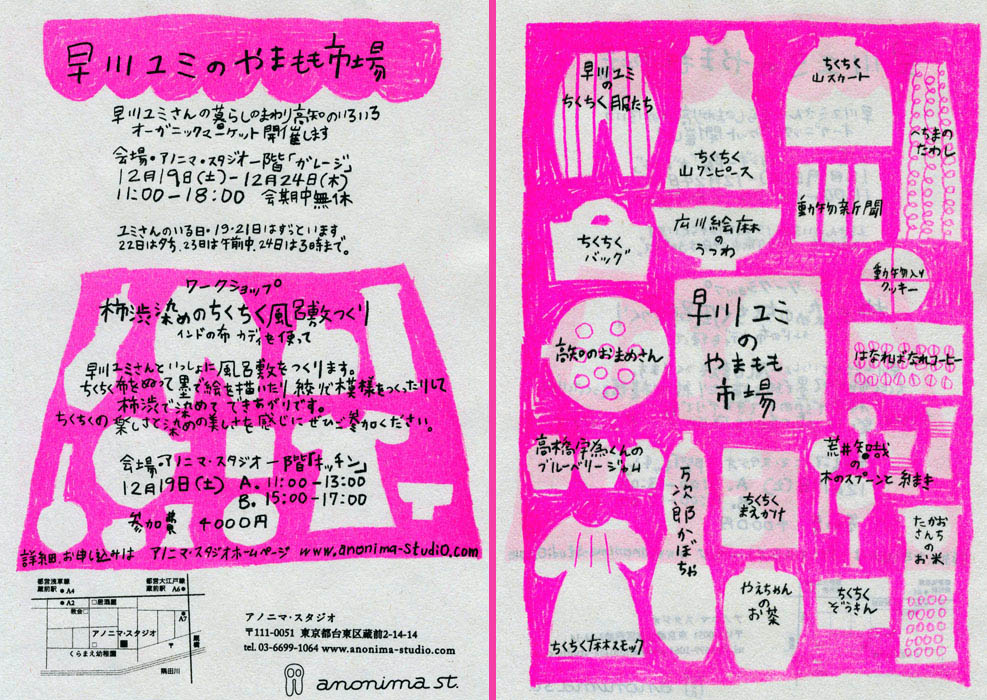 早川ユミのやまもも市場
早川ユミさんの暮らしのまわり高知のいろいろ
オーガニックマーケット開催します
会場・アノニマ・スタジオ一階「ガレージ」
12月19日(土)-12月24日(木)
11:00-18:00 会期中無休
ユミさんのいる日・19・21日はずっといます。
22日は夕方、23日は午前中、24日は3時まで。
ワークショップ
柿渋染めのちくちく風呂敷づくり
インドの布 カディを使って
早川ユミさんといっしょに風呂敷をつくります。
ちくちく布をぬって墨で絵を描いたり絞りで模様をつくったりして
柿渋で染めて できあがりです。
ちくちくの楽しさと染めの美しさを感じにぜひご参加ください。
会場・アノニマ・スタジオ一階「キッチン」
12月19日(土) A. 11:00-13:00
B. 15:00-17:00
参加費 4000円
詳細、お申し込みは アノニマ・スタジオホームページ www.anonima-studio.com
都営浅草線
蔵前駅 ●A4
都営大江戸線
蔵前駅 A6●
●A2 □居酒屋
教会□
●A7
アノニマ・スタジオ
〒
くらまえ幼稚園
厩橋
隅田川
アノニマ・スタジオ
〒111-0051 東京都台東区蔵前2-14-14
tel. 03-6699-1064 www.anonima-studio.com
anonima st.
早川ユミ
の
ちくちく服たち
ちくちく
山ワンピース
ちくちく
山スカート
へちまの
たわし
ちくちく
バッグ
広川絵麻
の
うつわ
動物新聞
動物入り
クッキー
高知のおまめさん
早川ユミ
の
やまもも
市場
はなればなれコーヒー
高橋宇為くんの
ブルーベリージャム
万次郎かぼちゃ
ちくちく
まえかけ
荒井智哉
の
木のスプーンと糸まき
たかお
さんちの
お米
ちくちく麻スモック
やえちゃん
のお茶
ちくちく
ぞうきん